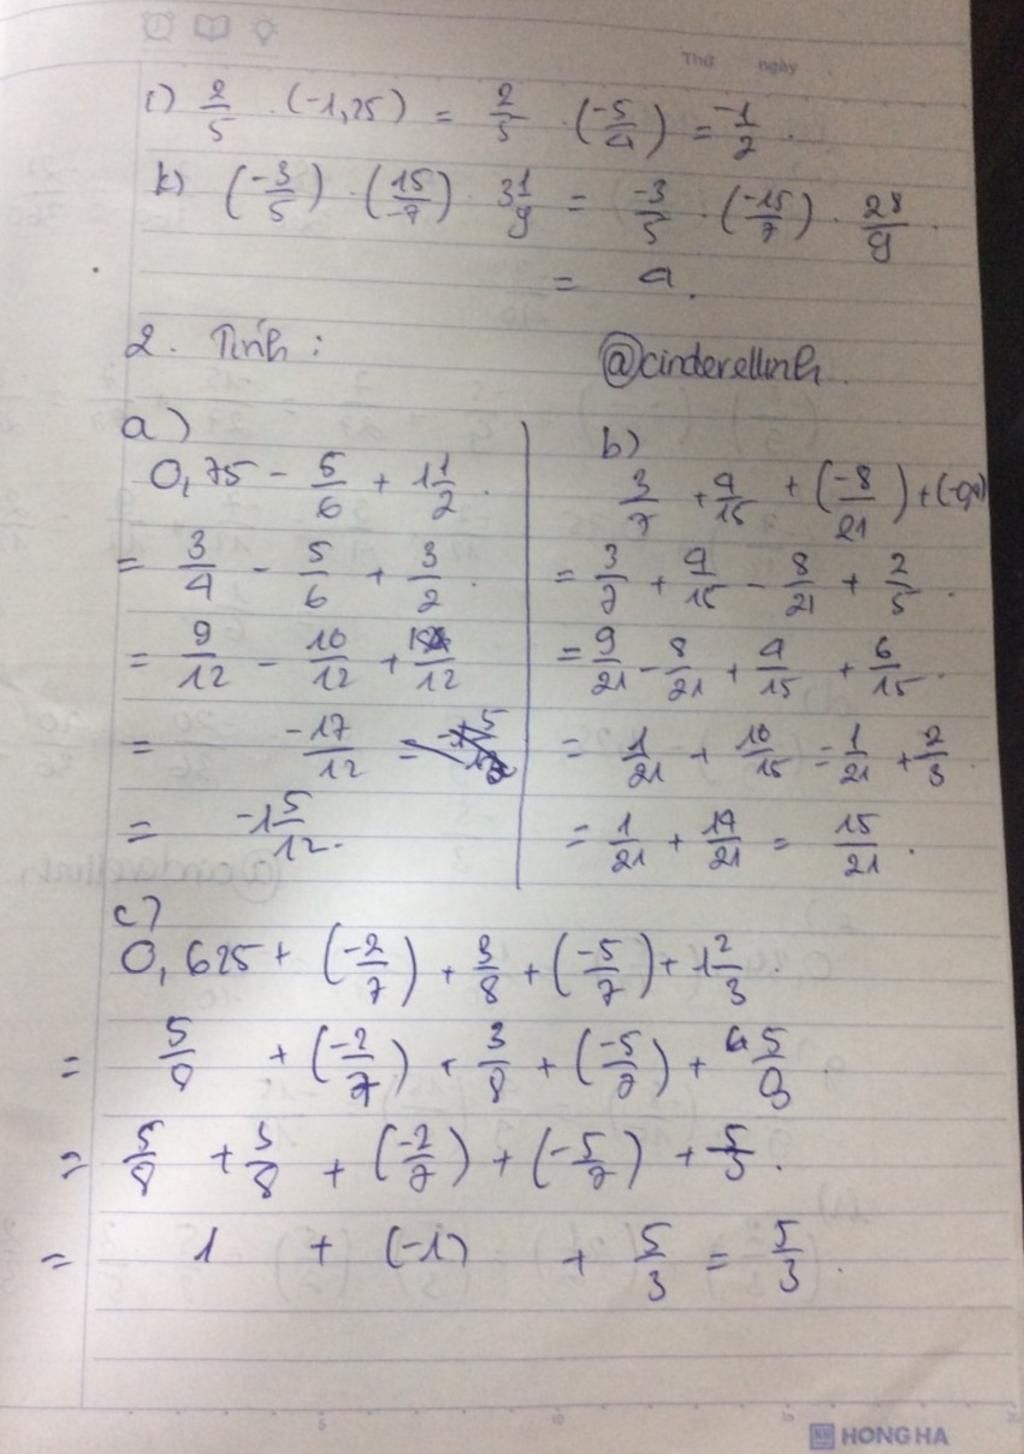 Thứ ngày
i) 2/5 . (-1,25) = 2/5 . (-5/4) = -1/2 .
k) (-3/5) . (15/-7) . 3 1/9 = -3/5 . (-15/7) . 28/9 .
= 4 .
2. Tính :
@cinderellinh .
a)
0,75 - 5/6 + 1 1/2 .
= 3/4 - 5/6 + 3/2 .
= 9/12 - 10/12 + /12
= -17/12 =
= -1 5/12 .
b)
3/7 + 4/15 + (-8/21) + (-0,
= 3/7 + 4/15 - 8/21 + 2/5 .
= 9/21 - 8/21 + 4/15 + 6/15 .
= 1/21 + 10/15 = 1/21 + 2/3 .
= 1/21 + 14/21 = 15/21 .
c)
0,625 + (-2/7) + 3/8 + (-5/7) + 1 2/3 .
= 5/8 + (-2/7) + 3/8 + (-5/7) + 5/3 .
= 5/8 + 3/8 + (-2/7) + (-5/7) + 5/3 .
= 1 + (-1) + 5/3 = 5/3 .
5 10 15
HONG HA